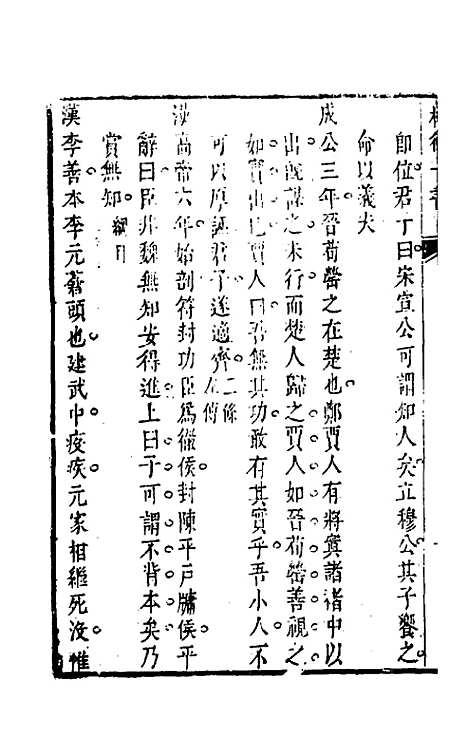 即位君子曰宋宣公可謂知人矣立穆公其子饗之
命以義夫
成公三年晉荀罃之在楚也鄭賈人有將寘諸褚中以
出既謀之未行而楚人歸之賈人如晉荀罃善視之
如實出已賈人曰吾無其功敢有其實乎吾小人不
可以厚誣君子遂適齊二條左傳
漢高帝六年始剖符封功臣爲徹侯封陳平戶牖侯平
辭曰臣非魏無知安得進上曰子可謂不背本矣乃
賞無知綱目
漢李善本李元蒼頭也建武中疫疾元家相繼死沒惟